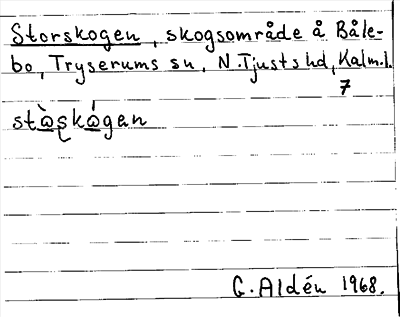 Storskogen, skogsområde å Båle-
bo, Tryserums sn, N. Tjusts hd, Kalm. l.
7
stɷ̀ʂkɷ́gan
G. Aldén 1968.